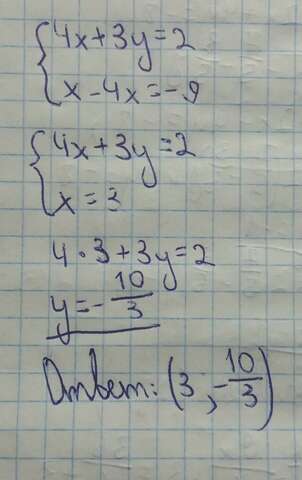 4x+3y=2
x-4x=-9
4x+3y=2
x=3
4·3+3y=2
y=-10/3
Ответ: (3; -10/3)